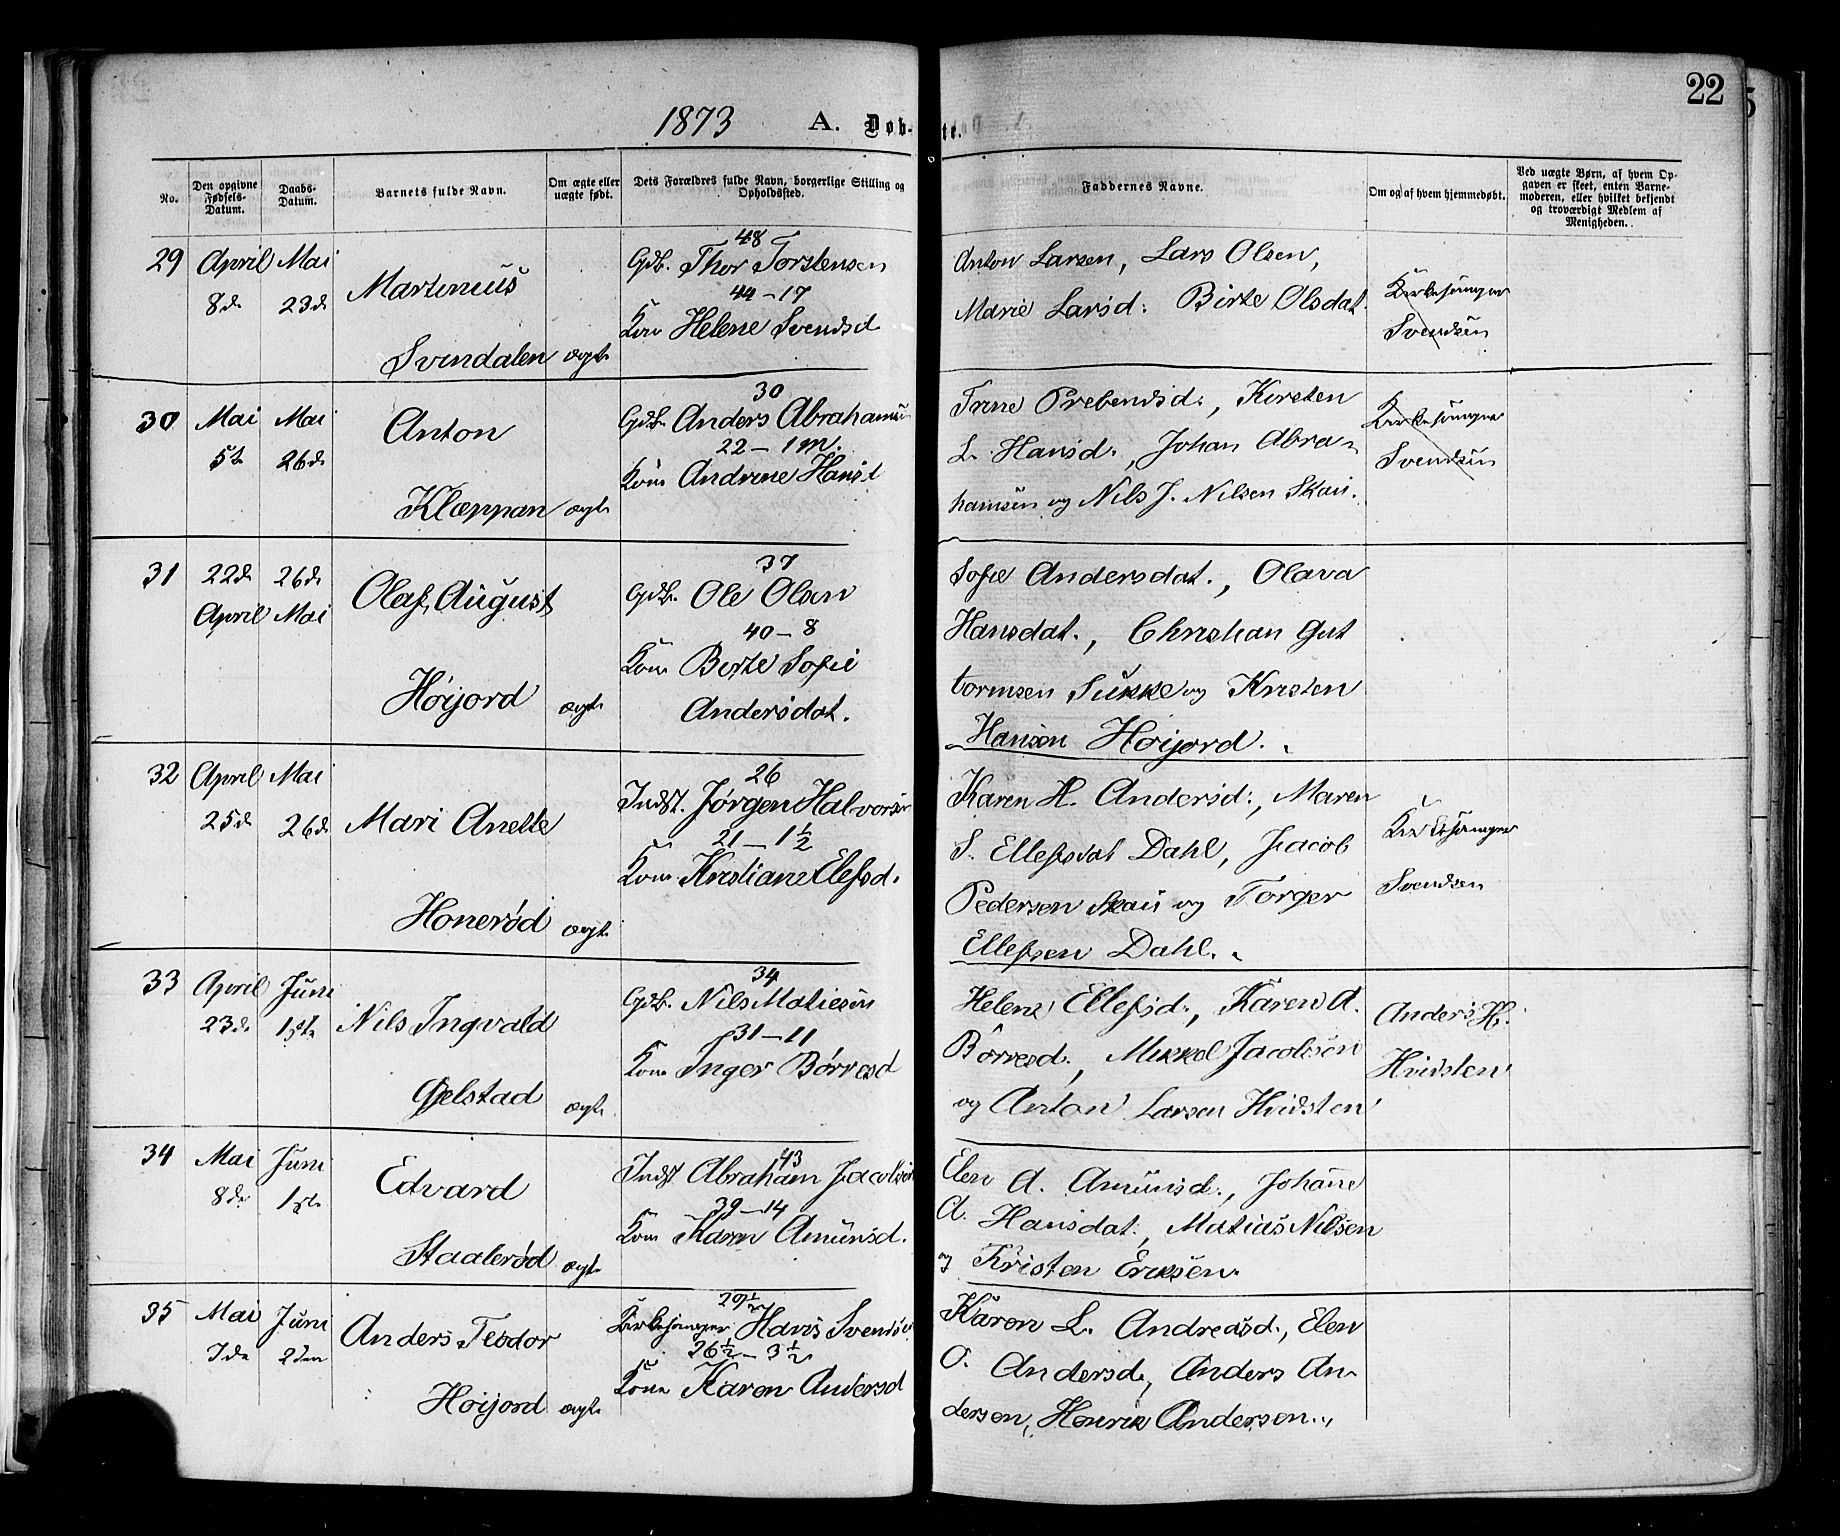 22
1873 A. Døb-te.
No.
Den opgivne Fødsels-Datum.
Daabs-Datum.
Barnets fulde Navn.
Om ægte eller uægte født.
Dets Forældres fulde Navn, borgerlige Stilling og Opholdssted.
Faddernes Navne.
Om og af hvem hjemmedøbt.
Ved uægte Børn, af hvem Op-
gaven er skeet, enten Barne-
moderen, eller hvilket bekjendt
og troværdigt Medlem af
Menigheden.
29 April 8de Mai 23de
Martinius
Svindalen ægte
48
Gdb. Thor Torstensen
44-17
Kone Helene Svendsd
Anton Larsen, Lars Olsen,
Marie Larsd: Birte Olsdat.
Kirkesanger
Svendsen
30 Mai 5te Mai 26de
Anton
Klæppan ægte
30
Gdb. Anders Abrahamsen
22-1 m.
Kone Andrine Hansd
Trine Prebensd., Kirsten
L. Hansd., Johan Abra-
hamsen og Nils J. Nilsen Skau.
Kirkesanger
Svendsen
31 22de April 26de Mai
Olaf August
Høijord ægte
37
Gdb. Ole Olsen
40-8
Kone Berte Sofie
Andersdat.
Sofie Andersdat., Olava
Hansdat., Christian Gut
tormsen Sukke og Kristen
Hansen Høijord.
32 April 25de Mai 26de
Mari Anette
Honerød ægte
26
Indst. Jørgen Halvorsen
21-1½
Kone Kristiane Elefsd.
Karen H. Andersd:, Maren
S. Ellefsdat Dahl, Jacob
Pedersen Skau og Torger
Ellefsen Dahl.
Kirkesanger
Svendsen
33 April 23de Juni 1ste
Nils Ingvald
Gjelstad ægte
34
Gdb. Nils Matiesen
31-11
Kone Inger Børresd
Helene Ellefsd., Karen A.
Børresd., Mikkel Jacobsen
og Anton Larsen Hvidsten
Anders H.
Hvidsten
34 Mai 8de Juni 1ste
Edvard
Staalerød ægte
43
Indst. Abraham Jacobsen
39-14
Kone Karen Amunsd.
Elen A. Amunsd., Johanne
A. Hansdat., Matias Nilsen
og Kristen Eriksen.
35 Mai 7de Juni 2den
Anders Teodor
Høijord ægte
29½
Kirkesanger Hans Svendsen
26½-3½
Kone Karen Andersd
Karen L. Andreasd., Elen
O. Andersd., Anders An-
dersen, Henrik Andersen.